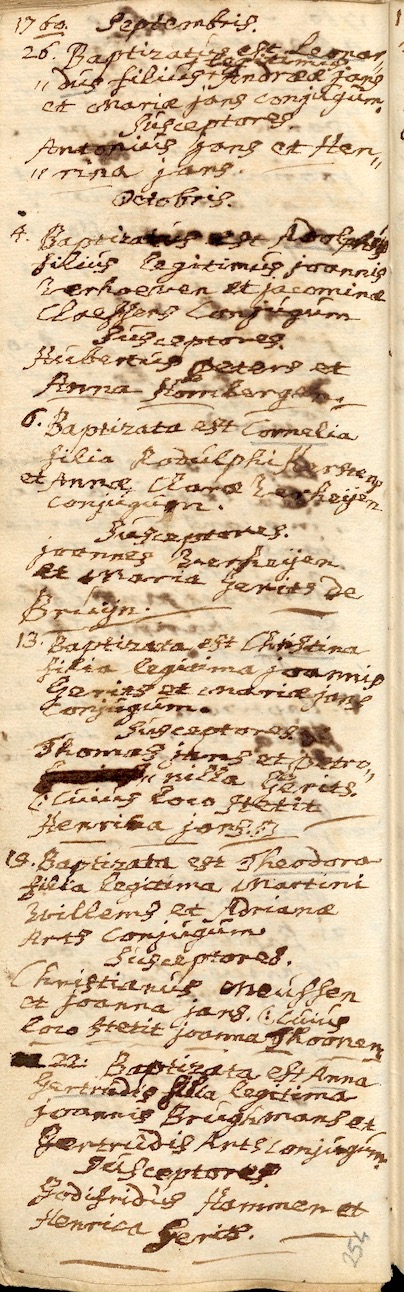 1760. Septembris.
26. Baptizatus est Leonar„
legitimus
„dus filius Andreæ jans
et Mariæ jans conjugum.
Susceptores.
Antonius jans et Hen„
„rina jans.
Octobris.
4. Baptizatus est Adolphus
filius legitimus joannis
Verhoeven et jacominæ
Claessens Conjugum
Susceptores.
Hubertus Peters et
Anna Hombergen.
6. Baptizata est Cornelia
filia Rodulphi Kersten
et Annæ Claræ Verheijen
Conjugum.
Susceptores.
joannes Verheijen
et Maria Gerits De
Bruijn.
13. Baptizata est Christina
filia legitima joannis
Gerits et Mariæ jans
Conjugum.
Susceptores
Thomas jans et Petro„
„nilla Gerits.
(: Cuius loco stetit
Henrica jans. :)
19. Baptizata est Theodora
filia legitima Martini
Willems et Adrianæ
Arts Conjugum.
Susceptores.
Christianus Meussen
et joanna jans. (: Cuius
loco stetit joanna Thoonen
22. Baptizata est Anna
Gertrudis filia legitima
joannis Brughmans et
Gertrudis Arts conjugum.
Susceptores
Godifridus Hammen et
Henrica Gerits.
254